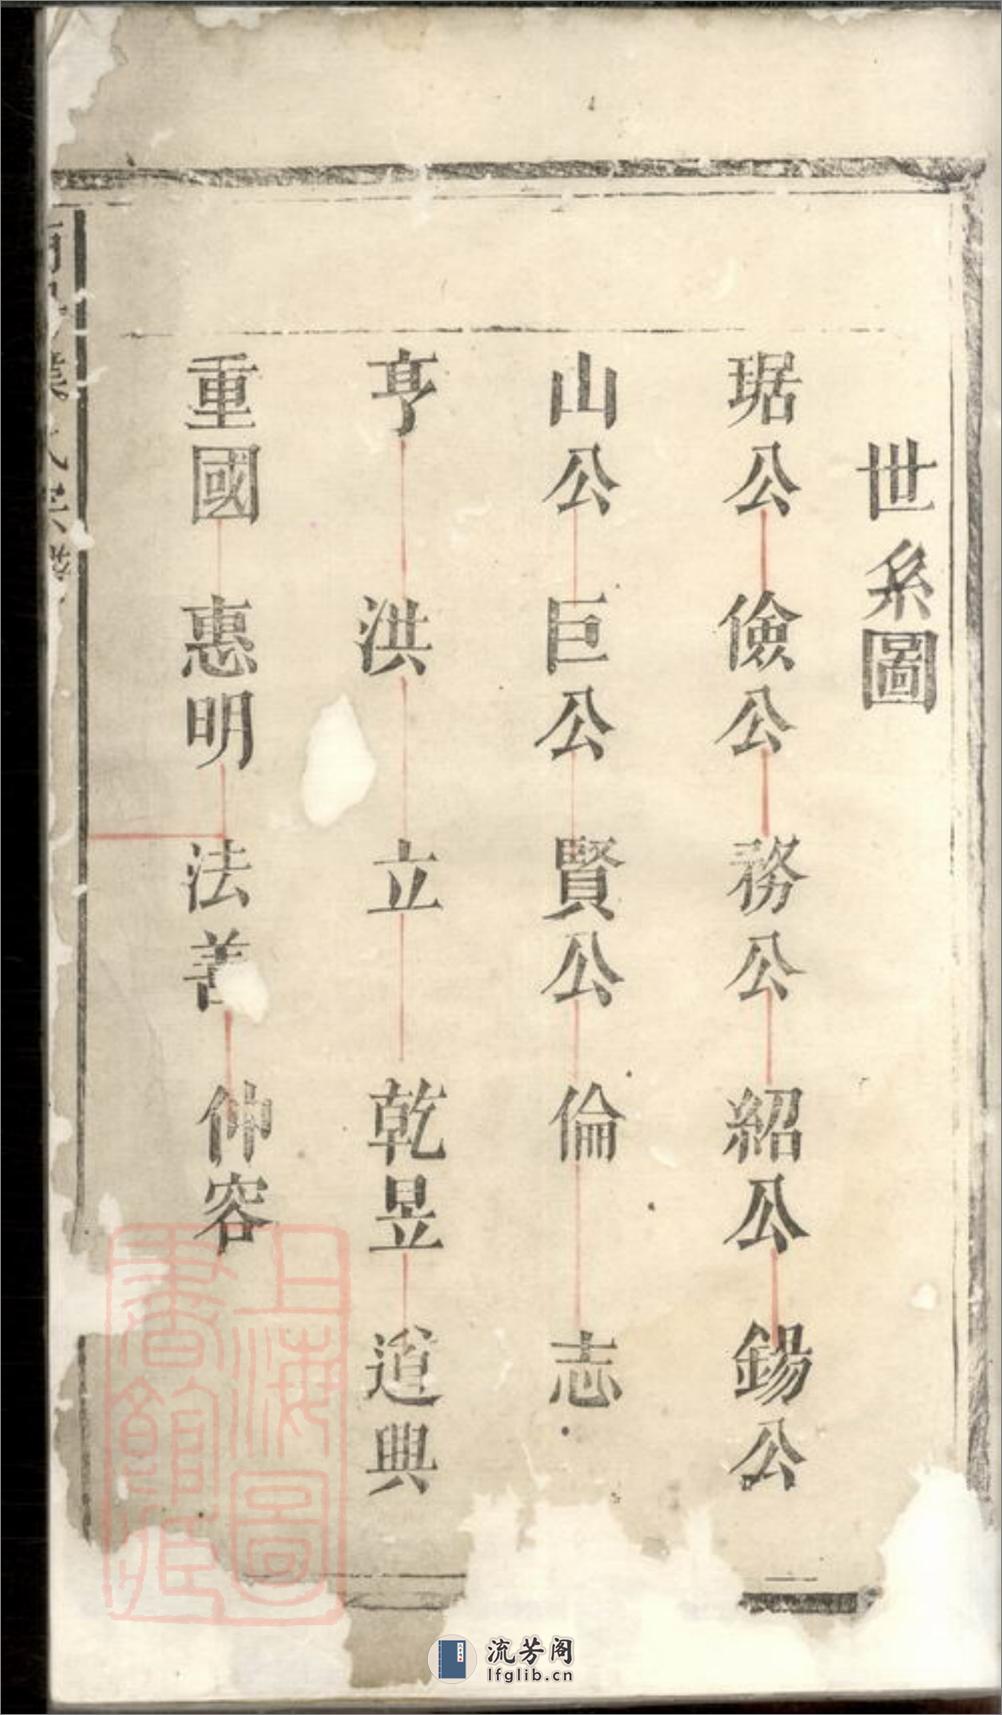 世系圖
琚公 儉公 務公 紹公 錫公
山公 巨公 賢公 倫 志
亨 洪 立 乾昱 道興
重國 惠明 法善 仲容
葉氏宗譜
上海圖書館藏
流芳阁
lfglib.cn